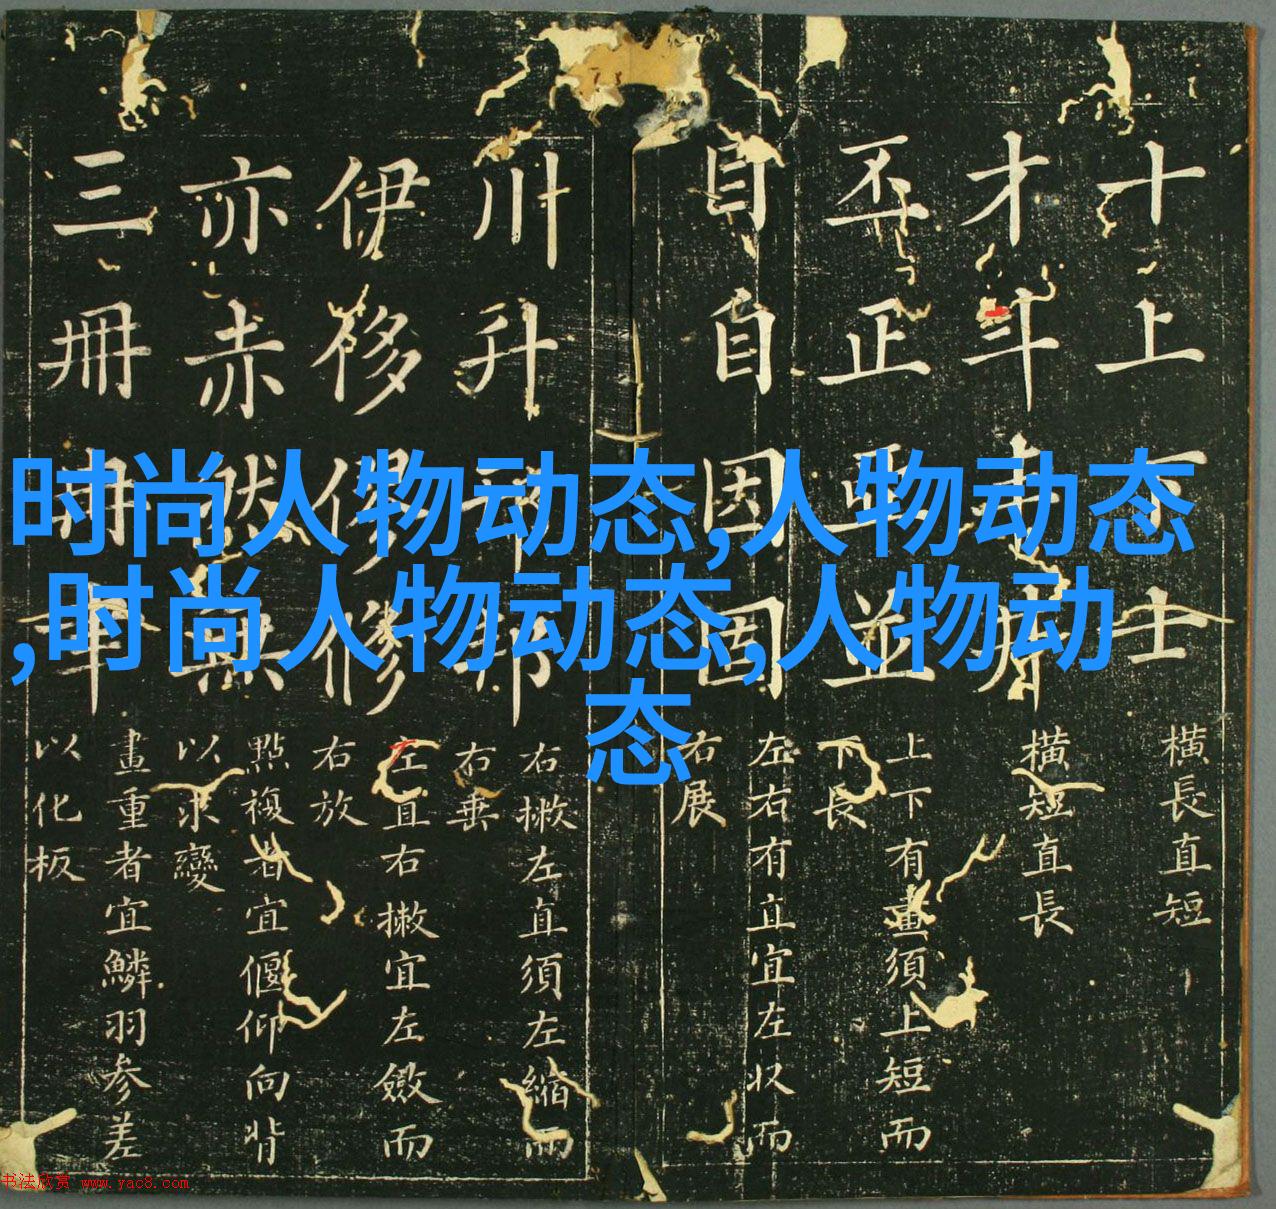 时尚人物动态,人物动态
,时尚人物动态,人物动
态
十上士
橫長直短
才斗
橫短直長
丕正並
上下有畫須上短而
下長
目自因固
左右有直宜左收而
右展
川升邦
右撇左直須左縮而
右垂
伊移修
左直右撇宜左斂而
右放
亦赤然無
點複者宜偃仰向背
以求變
三冊
畫重者宜鱗羽参差
以化板
书法欣赏 www.yac8.com